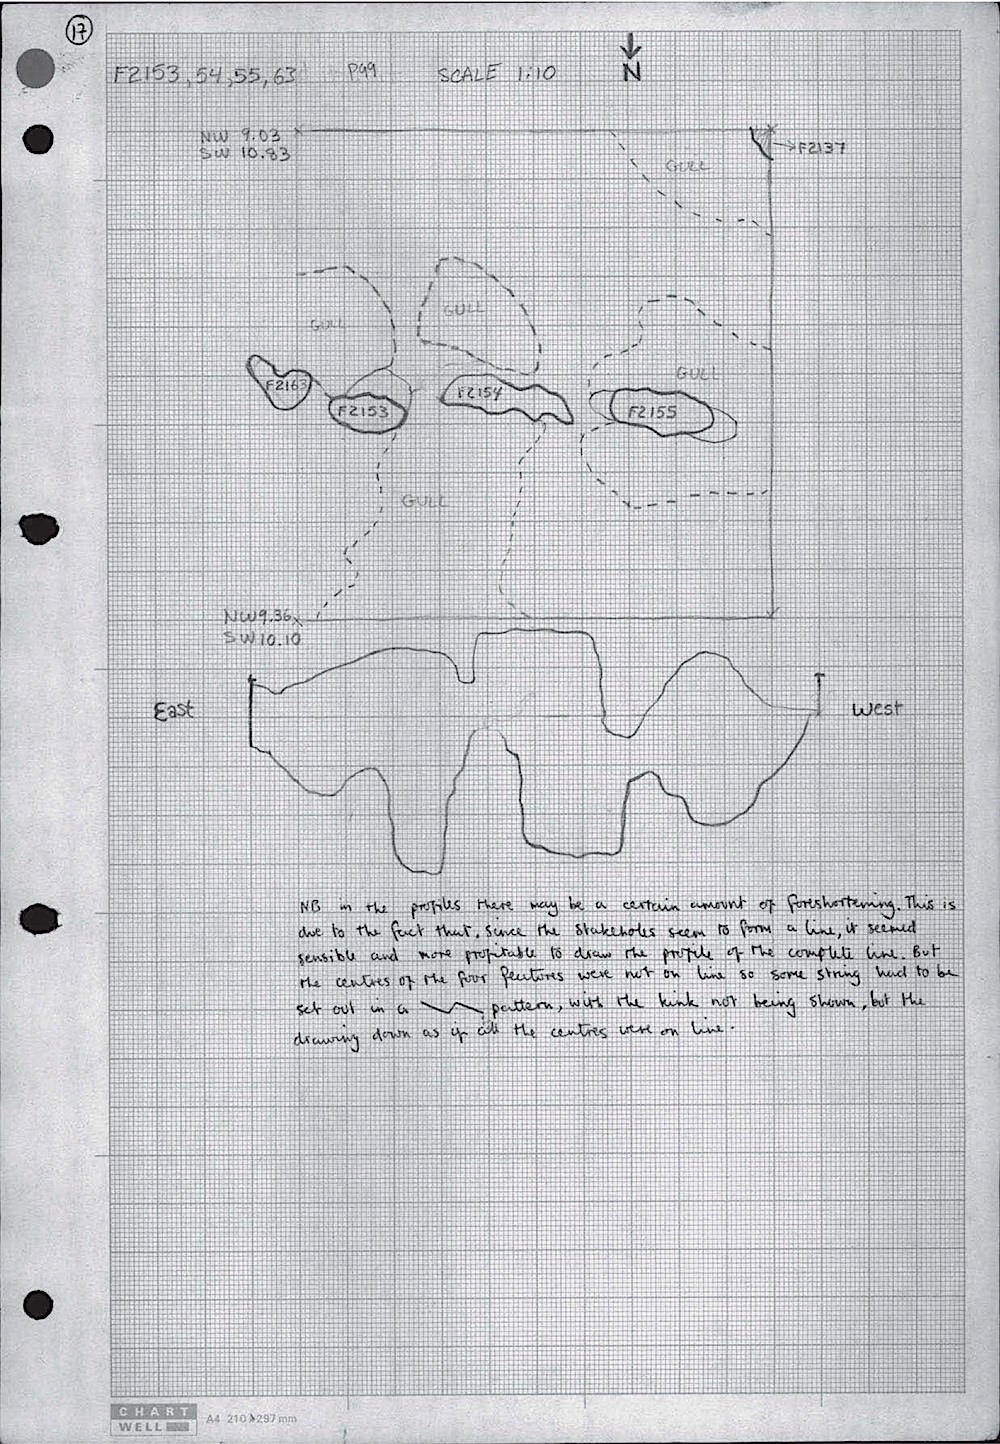 17
F2153,54,55,63 P99 SCALE 1:10
N
NW 9.03
SW 10.83
GULL
F2137
GULL
GULL
GULL
F2163
F2153
F2154
F2155
GULL
NW9.36
SW10.10
East
West
NB in the profiles there may be a certain amount of foreshortening. This is
due to the fact that, since the stakeholes seem to form a line, it seemed
sensible and more profitable to draw the profile of the complete line. But
the centres of the four features were not on line so some string had to be
set out in a pattern, with the kink not being shown, but the
drawing down as if all the centres were on line.
CHART
WELL
A4 210 297mm